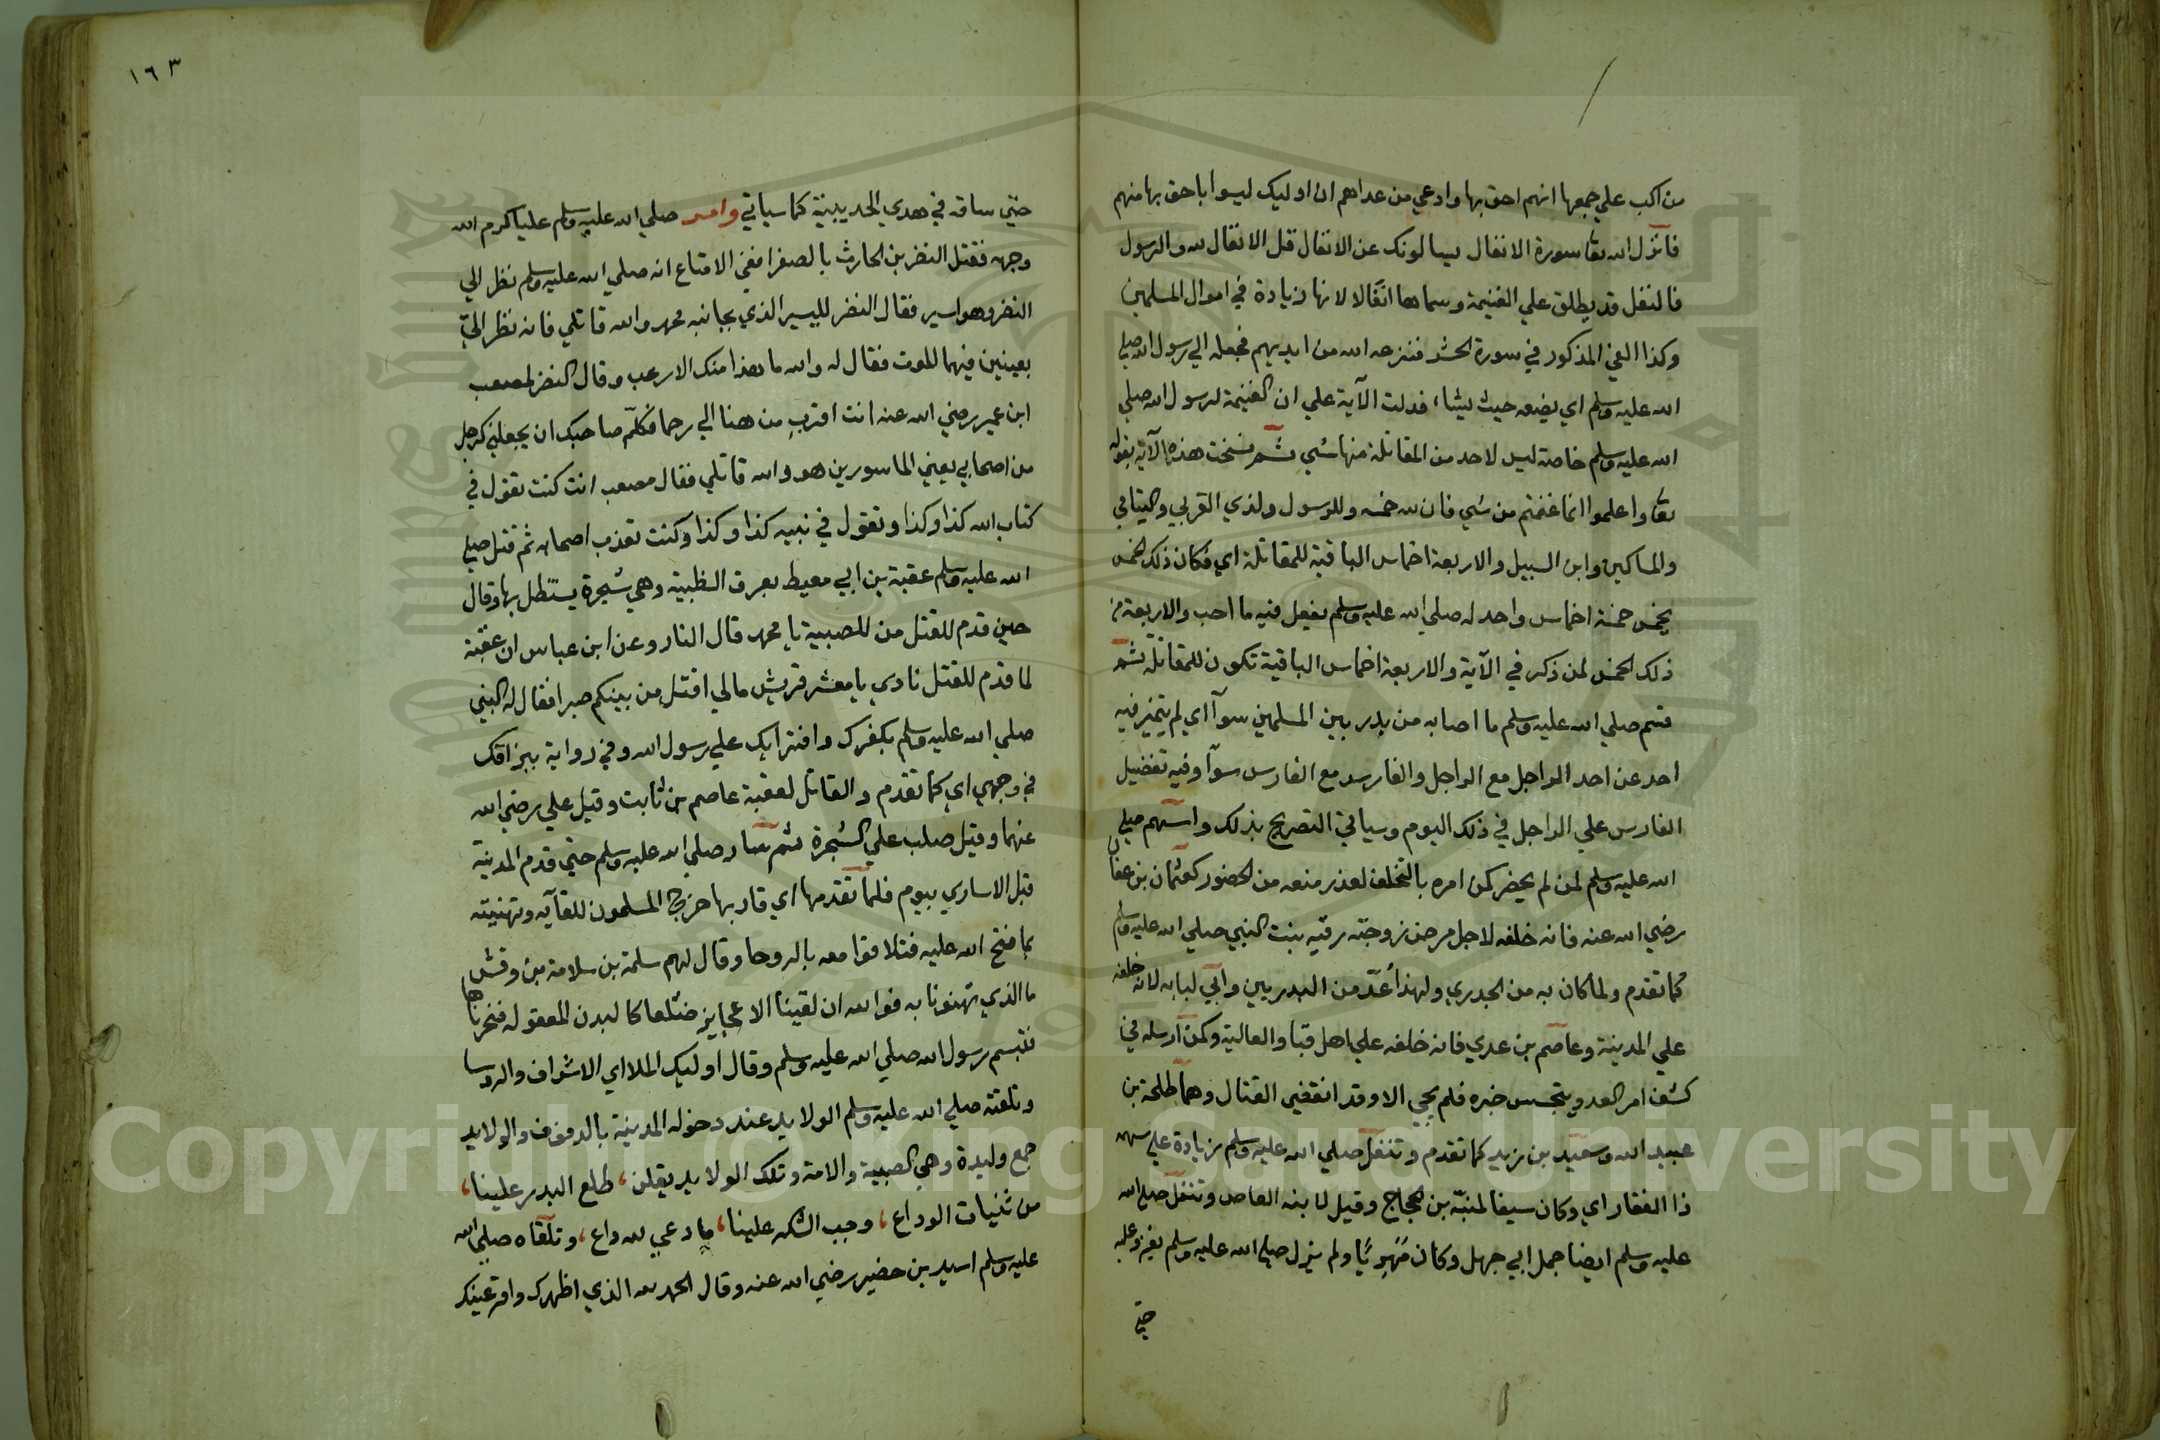 من اكب علي جمعها انهم احق بها وادعي من عداهم ان اوليك ليسوا باحق بها منهم
فانزل الله تعا سورة الانفال يسالونك عن الانفال قل الانفال لله والرسول
فالنفل قد يطلق علي الغنيمة وسماها انفالا لانها زيادة في اموال المسلمين
وكذا الفي المذكور في سورة الحشر فنزعه الله من ايديهم فجعله الي رسول الله صلي
الله عليه وسلم اي يضعه حيث يشا، فدلت الآية علي ان الغنيمة لرسول الله صلي
الله عليه وسلم خاصة ليس لاحد من المقاتلة منها شي ثم نسخت هذه الآية بقوله
تعا واعلموا انما غنمتم من شي فان لله خمسه وللرسول ولذي القربي واليتامي
والمساكين وابن السبيل والاربعة اخماس الباقية للمقاتلة اي فكان ذلك الخمس
يخمس خمسة اخماس واحد له صلي الله عليه وسلم يفعل فيه ما احب والاربعة من
ذلك الخمس لمن ذكر في الآية والاربعة اخماس الباقية تكون للمقاتلة ثم
قسم صلي الله عليه وسلم ما اصابه من بدر بين المسلمين سوآ اي لم يتميز فيه
احد عن احد الراجل مع الراجل والفارس مع الفارس سوآ وفيه تفضيل
الفارس علي الراجل في ذلك اليوم وسياتي التصريح بذلك واسهم صلي
الله عليه وسلم لمن لم يحضر كمن امره بالتخلف لعذر منعه من الحضور كعثمان بن عفان
رضي الله عنه فانه خلفه لاجل مرض زوجته رقيه بنت النبي صلي الله عليه وسلم
كما تقدم ولما كان به من الجدري ولهذا عُدّ من البدريين وابي لبابه لانه خلفه
علي المدينة وعاصم بن عدي فانه خلفه علي اهل قبا والعالية وكمن ارسله في
كشف امر العدو يتجسس خبره فلم يجي الا وقد انقضي القتال وهما طلحة بن
عبيد الله وسعيد بن زيد كما تقدم وتنفل صلي الله عليه وسلم زيادة علي سهمه
ذا الفقار اي وكان سيفا لمنبّه بن الحجاج وقيل لابنه العاص وتنفل صلي الله
عليه وسلم ايضا جمل ابي جهل وكان مَهريًا ولم يزل صلي الله عليه وسلم يغزو عليه
حتي
١٦٣
حتي ساقه في هدي الحديبية كما سياتي وامر صلي الله عليه وسلم عليا كرم الله
وجهه فقتل النضر بن الحارث بالصفرا ففي الامتاع انه صلي الله عليه وسلم نظر الي
النضر وهو اسير فقال النضر للسير الذي بجانبه محمد والله قاتلي فانه نظر اليّ
بعينين فيهما الموت فقال له والله ما هذا منك الا رعب وقال النضر لمصعب
ابن عمير رضي الله عنه انت اقرب من هنا الي رحما فكلّم صاحبك ان يجعلني كرجل
من اصحابي يعني الماسورين هو والله قاتلي فقال مصعب انت كنت تقول في
كتاب الله كذا وكذا وتقول في نبيه كذا وكذا وكنت تعذب اصحابه ثم قتل صلي
الله عليه وسلم عقبة بن ابي معيط بعرق الظبية وهي شجرة يستظل بها وقال
حين قدم للقتل من للصبية يا محمد قال النار وعن ابن عباس ان عقبة
لما قدم للقتل نادي يا معشر قريش مالي اقتل من بينكم صبرا فقال له النبي
صلي الله عليه وسلم بكفرك وافترايك علي رسول الله وفي رواية ببزاقك
في وجهي اي كما تقدم والقاتل لعقبة عاصم بن ثابت وقيل علي رضي الله
عنهما وقيل صلب علي الشجرة ثم سار صلي الله عليه وسلم حتي قدم المدينة
قبل الاساري بيوم فلما تقدمها اي قاربها خرج المسلمون للقآيه وتهنيته
بما فتح الله عليه فتلاقوا معه بالروحا وقال لهم سلمة بن سلامة بن وقش
ما الذي تهنونا به فوالله ان لقينا الا عجايز ضلعا كالبدن المعقوله فنحرناها
فتبسم رسول الله صلي الله عليه وسلم وقال اوليك الملا اي الاشراف والروسا
وتلقته صلي الله عليه وسلم الولايد عند دخوله المدينة بالدفوف والولايد
جمع وليدة وهي الصبية والامة وتلك الولايد يقلن، طلع البدر علينا،
من ثنيات الوداع، وجب الشكر علينا، ما دعي لله داع، وتلقاه صلي الله
عليه وسلم اسيد بن حضير رضي الله عنه وقال الحمد لله الذي اظهرك واقر عينك
Copyright © King Saud University